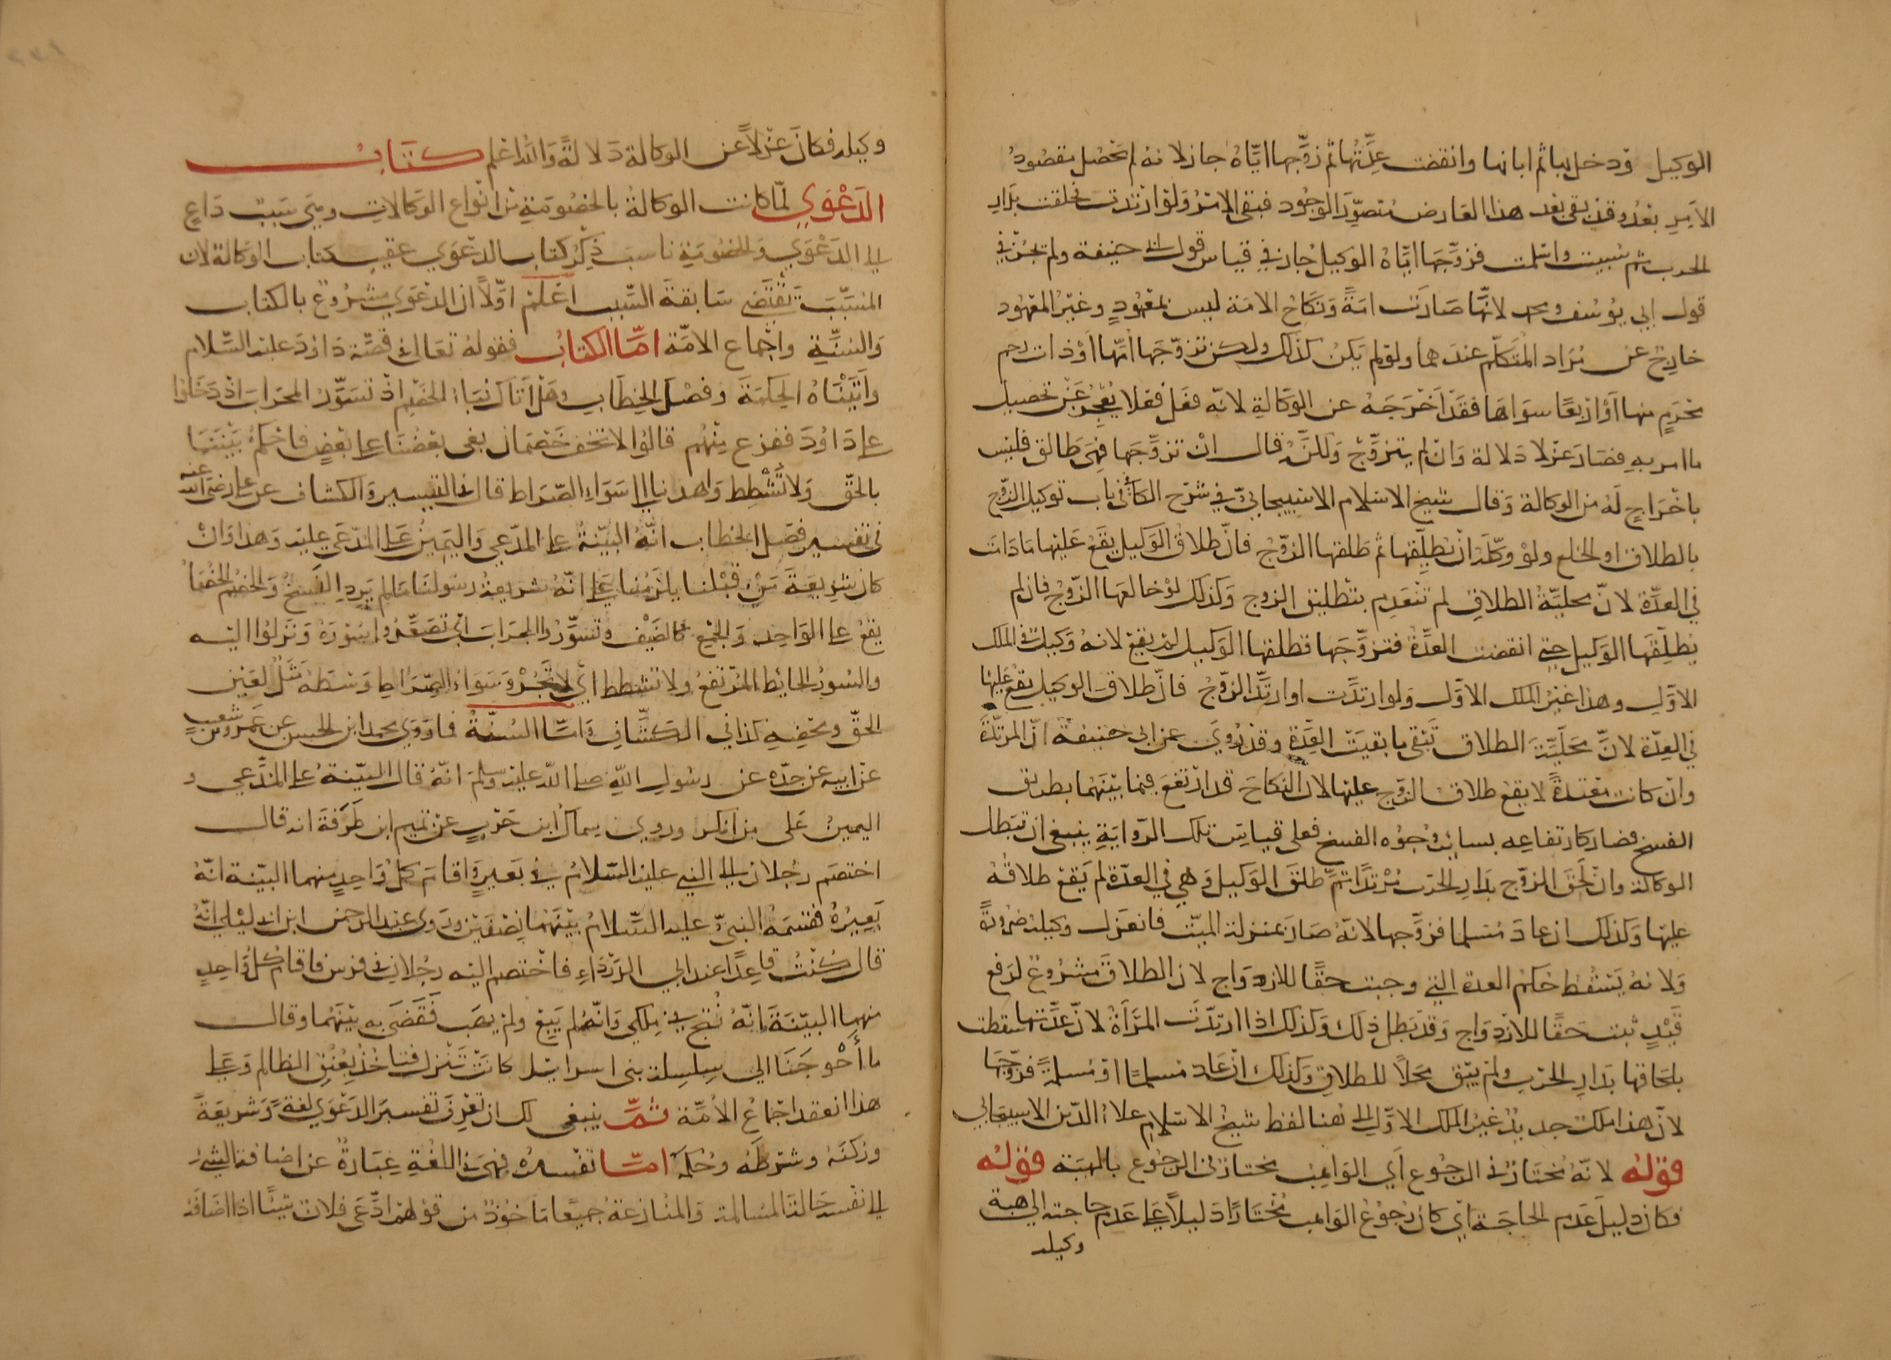 الوكيل ودخل بها ثم ابانها وانقضت عِدَّتُها ثم زوَّجها ايّاهُ جاز لانه لم يَحْصُل مقصودُ
الآمِرِ بَعْدُ وقد بقى بعد هذا العارض مُتصوَّرَ الوجُود فبقى الامرُ ولو ارتدّت ولحقت بدَارِ
الحرب ثم سُبيت واسلمت فزوَّجَها ايّاهُ الوكيل جاز في قياس قول ابى حنيفة ولم يَجُزْ في
قول ابى يوسف ومحمد لانّها صَارَت امَةً ونكاح الامَة ليس بمعهودٍ وغيرُ المعهود
خارِجٌ عن مُرَاد المُتكلّم عندهما ولو لم يكن كذلك ولكن تزوّجَها امّها اوْ ذات رحم
محرَمٍ منها اوْ اربعًا سِوَاهَا فقد اَخْرَجَهُ عن الوَكالةِ لانّه فعَل فعلا يُعْجِزُ عَنْ تحصيل
ما امر بهِ فصَارَ عَزلا دَلالة وَانْ لم يتزوَّجْ وَلكنَّهُ قال انْ تزوَّجَها فهىَ طَالق فليس
باخْرَاجٍ لَهُ من الوكالة وَقال شيخ الاسلام الاسبيجابىّ في شرح الكافى في باب توكيل الزوج
بالطلاق او الخلع ولوْ وكّلَهُ انْ يُطلِّقها ثم طلقها الزوْجُ فانّ طلاق الوكيل يقعُ عَليْها مَا دَامَت
في العدّة لانّ محليّةَ الطلاق لم تنعَدِم بتطليق الزوج وَكذلك لوْ خالعَها الزوْج فان لم
يُطلِّقهَا الوكيل حتى انقضت العدَّةُ فتزوَّجَها فطلقها الوَكيل لم يقعْ لانهُ وَكيلٌ في الملك
الاوّلِ وهذا غيرُ الملك الاوّل ولو ارتدّت او ارتدَّ الزوْجُ فانّ طلاقَ الوكيل يقعُ عليها
في العِدّة لانّ مَحَلِّيَّةَ الطلاق تبقى ما بَقيَت العِدَّة وقد رُوِىَ عن ابى حنيفة انّ المرتدّةَ
وَان كانت معتدةً لا يقعُ طلاق الزوج عليها لان النكاحَ قد ارْتفعَ فيما بيْنَهُمَا بطريق
الفسخ فصار كارتفاعِه بسائر وجوُه الفسخ فعلى قياسِ تلك الرّوايةِ ينبغى ان تبطل
الوكالة وانْ لَحقَ الزوْج بدَارِ الحرب مُرْتدًا ثمّ طلق الوَكيل وَهي في العدّة لم يَقع طلاقُهُ
عليها وَكذلك ان عادَ مُسلما فزوَّجها لانّهُ صَارَ بمنزلة الميّت فانعزَل وكيلهُ ضرورَةً
وَلانهُ يَسْقُط حُكمُ العدة التي وجبت حقًا للازدوَاج لان الطلاقَ مشروُع لرَفع
قَيْدٍ ثبت حَقًا للازدوَاج وَقد بَطل ذلك وَكذلك اذا ارتدّت المرْأةُ لانّ عِدَّتَها سقطت
بلحَاقها بدَارِ الحرْب ولم يَبْق محَلاً للطلاق وَكذلك انْ عَادَ مُسلمًا اوْ مُسلمَةً فزوّجَهَا
لانّ هذا ملك جديدٌ غيرُ الملك الاوّل الى هنا لفظ شيخ الاسلام علاءُ الدّين الاسبيجابى
قولهُ لانّهُ مُختارٌ في الرجُوع اَى الوَاهِبُ مختارٌ في الرّجُوعِ بالهبَة قولهُ
فكان دليلَ عَدم الحاجَةِ اى كان رُجوُعُ الوَاهب مُختَارًا دَليلاً على عَدَم حاجته الى هبة
وكيله
وكيله فكانَ عَزْلاً عَن الوكالة دَلالةً وَالله اعْلم كتابُ
الدَعْوَى لمّا كانت الوكالةُ بالخصُومَةِ من انواع الوَكالاتِ وهى سَبَبٌ دَاعٍ
الى الدَعْوَى وَالخصُومَةِ ناسَبَ ذِكْرُ كتاب الدّعْوَى عقيبَ كتاب الوَكالة لان
المُسَبَّبَ يَقتَضى سَابقةَ السَّبب اعْلمْ اوّلاً ان الدعْوَى مشرُوعٌ بالكتاب
وَالسُنّةِ واجْمَاع الامّة امَّا الكتابُ فقولهُ تعَالى في قصّة دَاوُدَ عليه السّلام
وَآتَيْنَاهُ الحكمَةَ وَفصْلَ الخِطَاب وهَلْ اَتَاكَ نَبَاءُ الخَصْمِ اذْ تسَوَّرُوا المِحرَابَ اذْ دَخَلُوا
على دَاوُدَ ففزع مِنْهُم قالُوا لا تخفْ خَصْمَان بغى بعْضُنَا على بَعْضٍ فاحْكمْ بَيْنَنَا
بالحقّ وَلا تُشْطِط وَاهدنا الى سَوَاءِ الصّرَاط قال في التيسير وَالكشاف عن على رضى الله عنه
في تفسير فصْل الخطاب انّهُ البَيّنةُ على المدّعى وَاليَمينُ عَلى المدّعَى عليه وَهذا وَانْ
كان شَرِيعَةَ مَنْ قَبْلنا يلزَمُنَا على انّهُ شريعَةُ رسولنَا مَا لم يَرِدِ الفَسْخُ وَالخصْمُ الخُصَمَاءُ
يقعُ على الوَاحِدِ وَالجمْعِ كالضيْف وتسوَّرُوا المِحرَابَ اى تصَعَّدُوا سُورَهُ وَنَزلُوا اليْه
والسُورُ الحائِط المُرْتفعُ ولا تشْطط اىْ لا تَجُرْ وَسَوَاءُ الصّرَاطِ وَسَطهُ مَثَلٌ لِعَيْن
الحَقّ ومحْضِهِ كذا في الكشّافِ وَامَّا السُنّةُ فما رَوَى محمد ابن الحسن عن عَمرو بن شعيبٍ
عن ابيه عن جدّه عن رسُول اللهِ صلى الله عليه وسلم انّهُ قال البيّنةُ على المدّعى و
اليمينُ عَلى من انكر وروى سماك ابن حَرْبٍ عن تميم ابن طَرَفَةَ انه قال
اختصَم رَجُلان الى النبىّ عليه السّلامُ في بَعيرٍ وَاقامَ كلّ وَاحِدٍ منهما البيّنة انّهُ
بَعِيرُهُ فقسَمَهُ النبىُّ عليه السّلامُ بيْنَهُما نِصْفَيْن وَرَوى عبد الرحمن ابن ابى ليْلى انّهُ
قال كُنْتُ قاعِدًا عند ابى الدّرْدَاءِ فاخْتصم اليْهِ رجُلان في فرسٍ فاقامَ كلّ وَاحدٍ
منهما البيّنَةَ انّهُ نُتجَ في مِلكى وَانّهُ لم يَبعْ ولم يهَب فَقضَى بهِ بيْنَهُما وقال
ما اَحْوجَنَا الى سِلسِلة بنى اسرائيل كانَت تَنْزِلُ فتاخُذُ بِعُنُقِ الظالم وَعَلى
هذا انعقد اجْمَاعُ الامَّة ثمّ ينبغى لك ان تعْرِف تفسيرَ الدَعْوَى لغةً وَشريعَةً
وَرُكنَهُ وشرْطَهُ وحُكمَهُ امّا تفسيرُهُ فهىَ في اللغةِ عِبَارةٌ عن اضافة الشيء
الى نفسه حَالة المُسَالمة وَالمُنازعة جميعًا مَاخوُذٌ من قولهم ادّعَى فلان شَيْئًا اذا اضَافَهُ